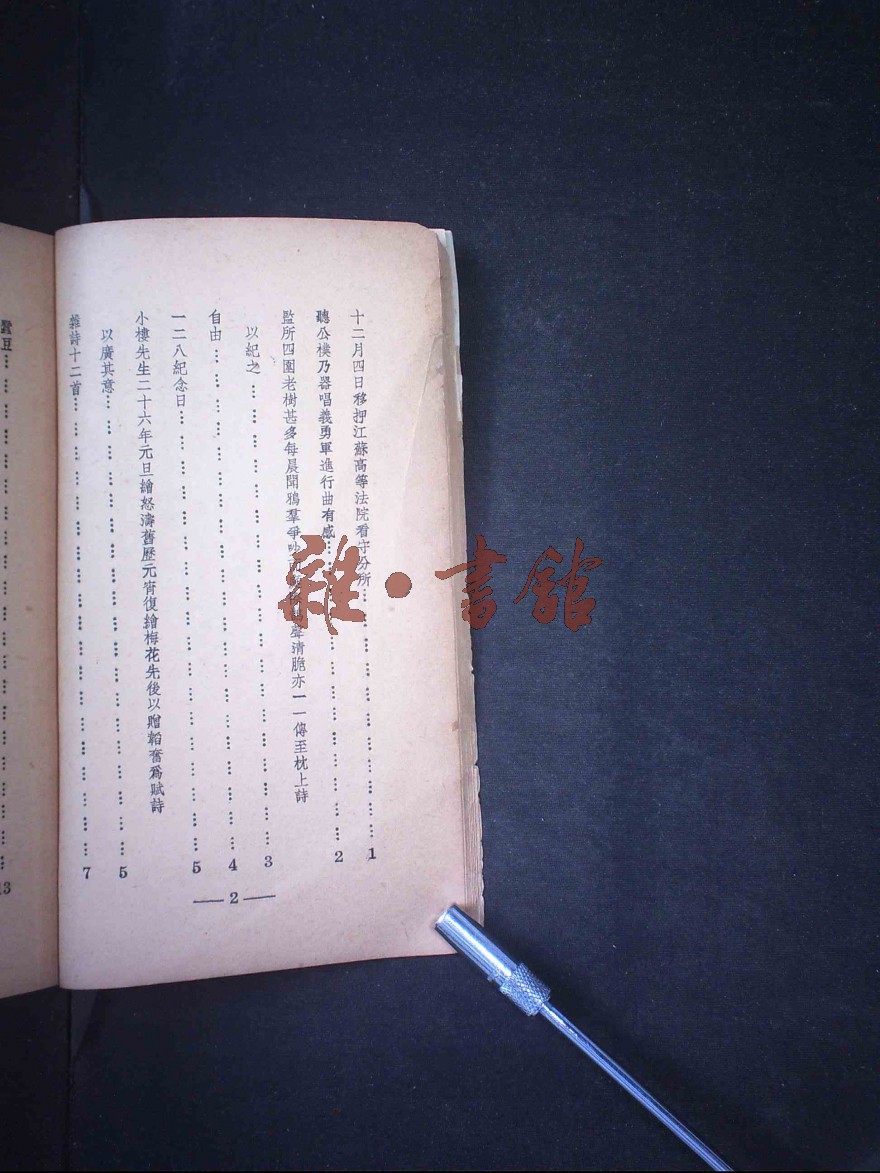 十二月四日移押江蘇高等法院看守分所……………………1
聽公樸乃器唱義勇軍進行曲有感……………………2
監所四圍老樹甚多每晨聞鴉羣爭 聲清脆亦一一傳至枕上詩
以紀之……………………3
自由……………………4
一二八紀念日……………………5
小樓先生二十六年元旦繪怒濤舊歷元宵復繪梅花先後以贈韜奮爲賦詩
以廣其意……………………5
雜詩十二首……………………7
— 2 —
蠶豆……………………13
雜·書館